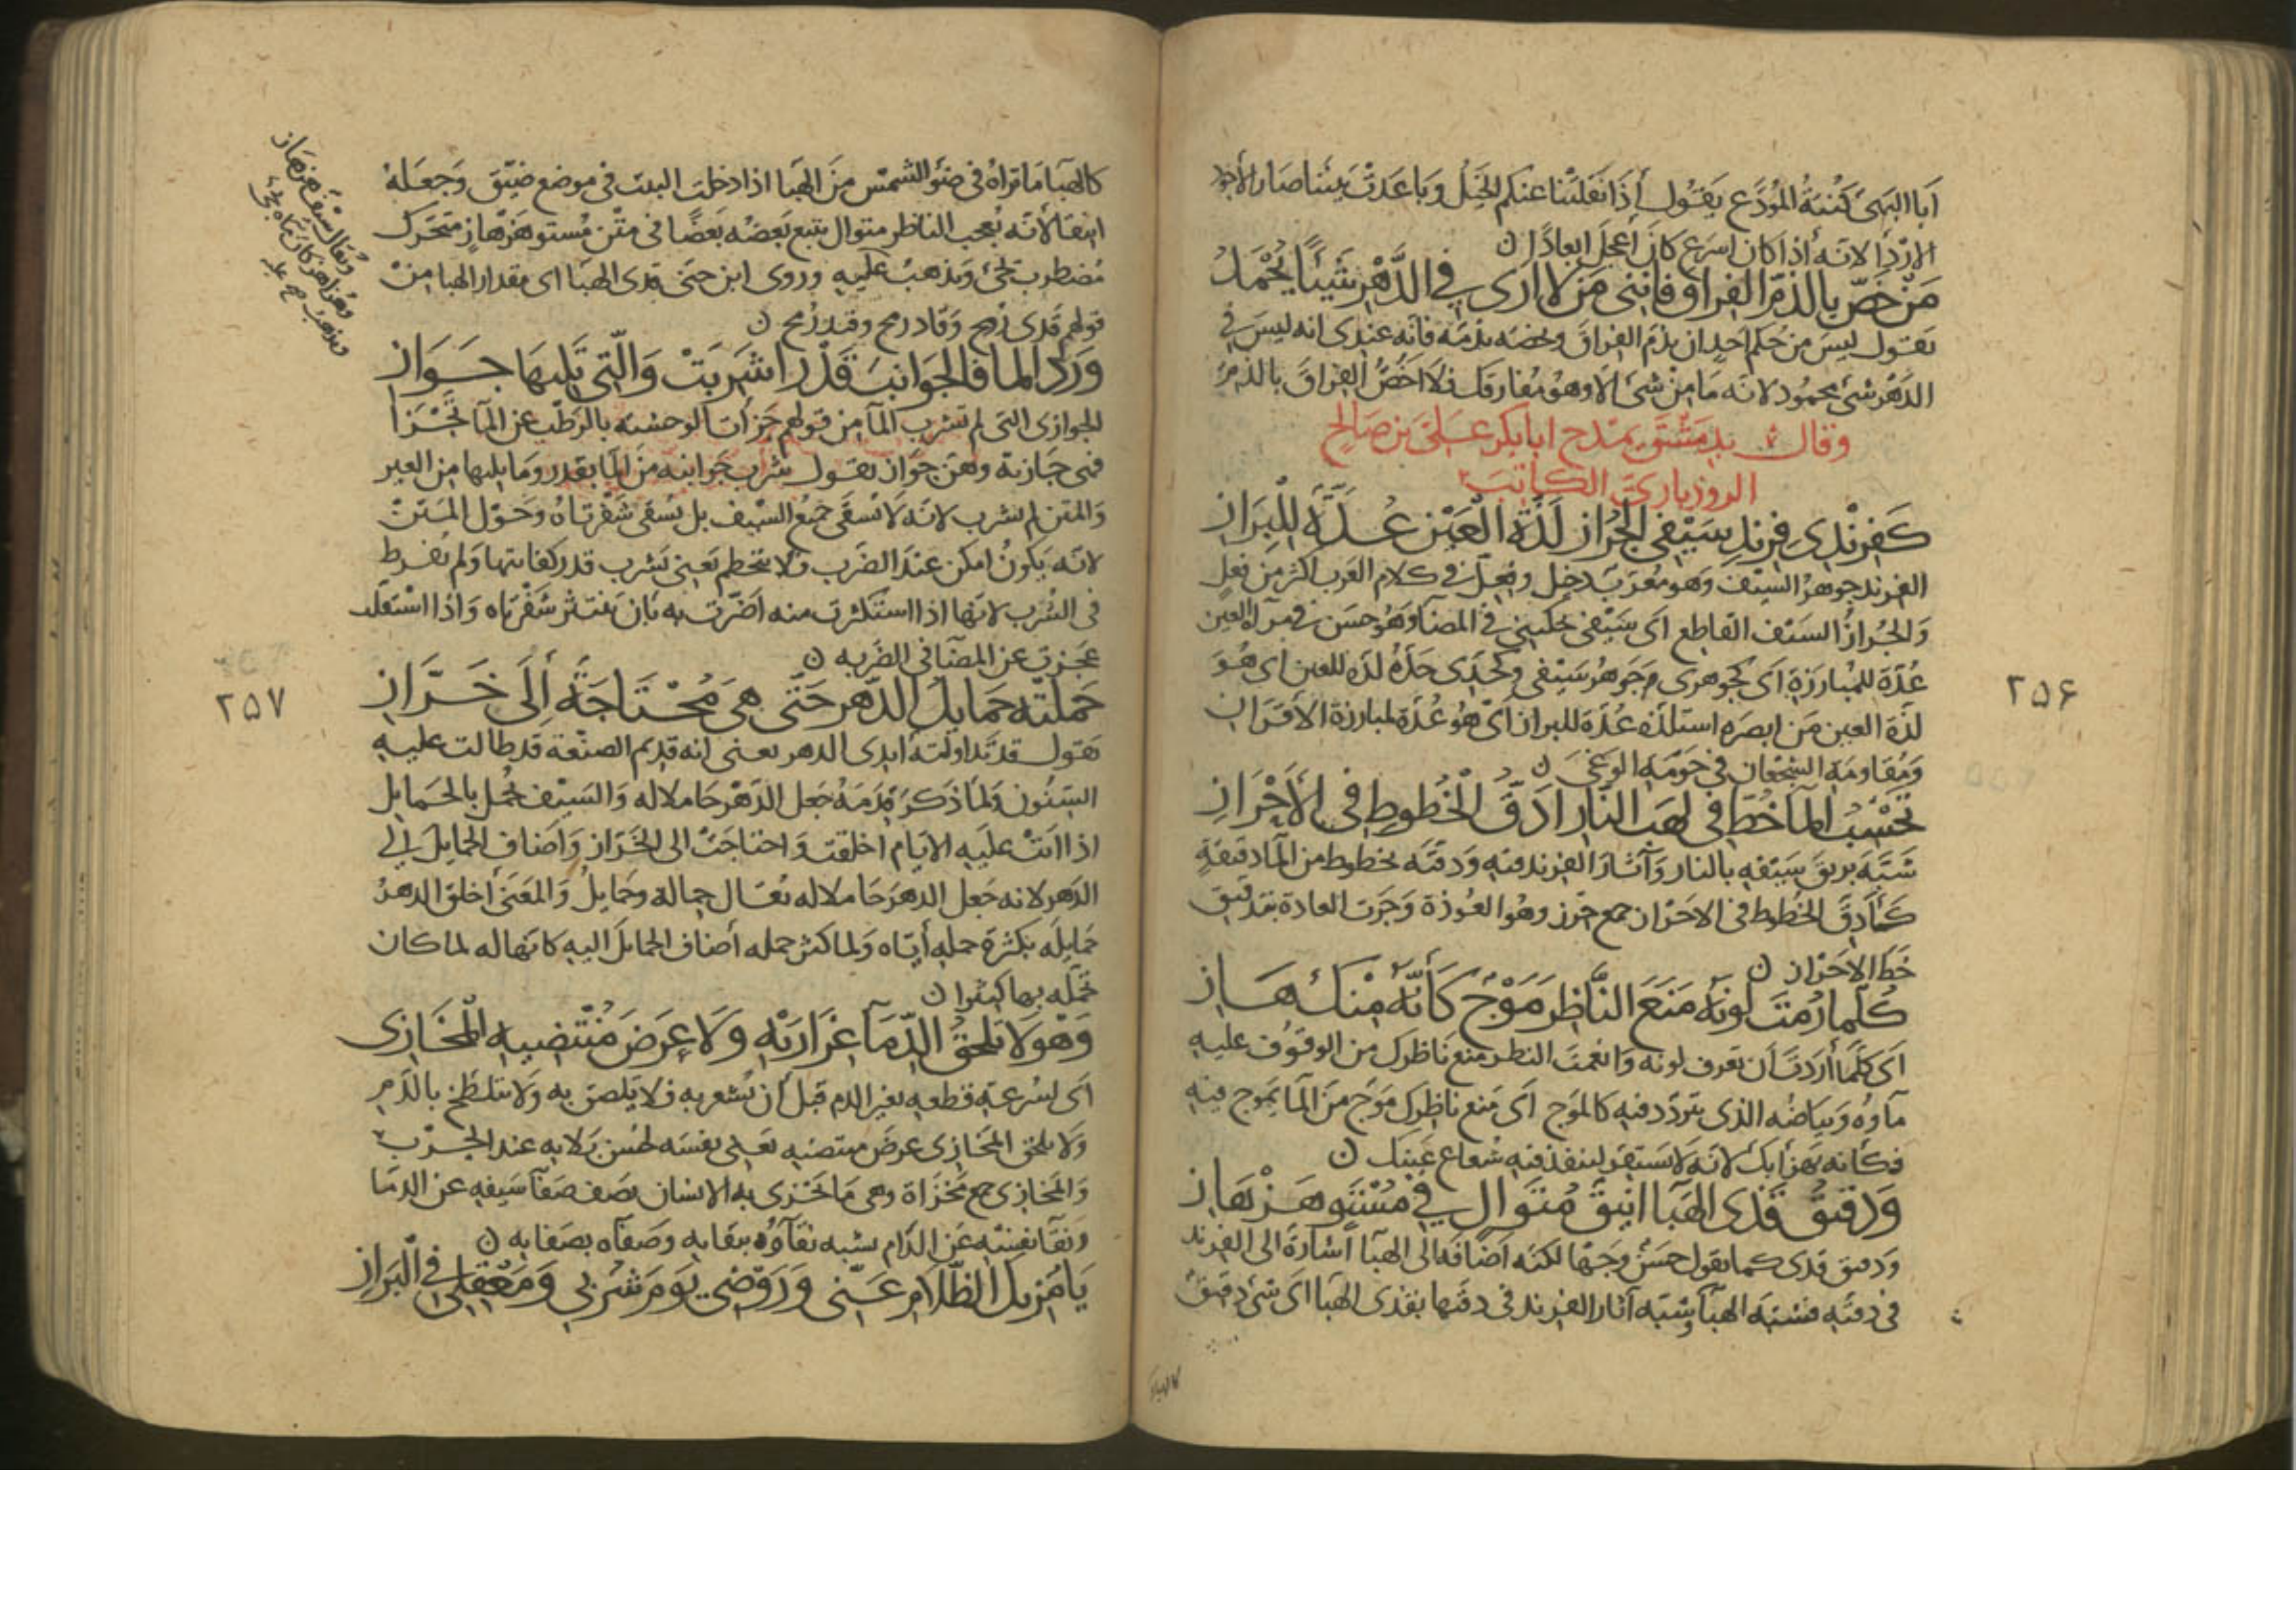 ابا البهىّ كنية المودَّع يقول اذا نقلتنا عنكم الخيل وباعدت بيننا صار الاجود
الاردأ لانه اذا كان اسرع كان اعجل ابعادًا ن
مَنْ خَصَّ بالذمّ الفراقَ فانّنى مَنْ لا ارى في الدَّهْرِ شَيئًا يُحْمَدُ
يقول ليس من حكم احدٍ ان يذم الفراق ويخصه بذمه فانه عندى انه ليس في
الدَّهْر شئ محمود لانه ما من شئ الا وهو مفارقك فلا اخصُّ الفراق بالذم
وقال بدمشق يمدح ابا بكر على بن صالح
الروزبارىّ الكاتب
كَفِرِنْدِى فِرِنْدُ سَيْفى الجُرازِ لَذَّةُ العَيْنِ عُدَّةٌ لِلْبَرازِ
الفرند جوهر السيف وهو معرّب دخيل وفِعِلّ فى كلام العرب اكثر من فِعِل
والجُراز السيف القاطع اى سيفى يحكينى في المضآ وهو حسن في مرآة العين
عُدّة للمبارزة اى كجوهرى جوهر سيفى وكحدى حدّه لذة للعين اى هو
لذة العين من ابصره استلذه عدّة للبراز اىّ هو عُدّة لمبارزة الاقران
ومقاومة الشجعان في حومة الوغى ن
تَحْسَبُ المآ خُطَّ فى لهب النّار ادَقَّ الخُطوطِ فى الأحْرازِ
شبّه بريق سيفه بالنار وآثار الفرند فيه ودقته بخطوط من المآ دقيقةٍ
كأدقّ الخطوط فى الاحراز جمع حرز وهو العُوذة وجرت العادة بتدقيق
خط الاحراز ن
كُلّما رُمْتَ لونَهُ مَنَعَ النَّاظِرَ مَوْجٌ كَأنَّهُ مِنْكَ هَازِ
اى كلما أردت أن تعرف لونه وانعمت النظر منع ناظرك من الوقوف عليه
مآوه وبياضه الذى يتردد فيه كالموج اى منع ناظرك موج من المآ يموج فيه
فكأنه يهزأ بك لانه لا يستقر لينفذ فيه شعاع عينك ن
وَدقيقٌ قَذَى الهَبَآ انيقٌ مُتَوَالٍ في مُسْتَوٍ هَزْهَازِ
ودقيق قدى كما يقول حسنٌ وجهًا لكنه اضافه الى الهبآ اشارة الى الفرند
فى دقته فشبه الهبآ وشبه آثار الفرند فى دقتها بقذى الهبآ اى شئ دقيق
كالهباء
۲۵۶
كالهبآ ما تراه فى ضؤ الشمس من الهبا اذا دخلت البيت فى موضع ضيّق وجعله
انيقا لانه يعجب الناظر متوال يتبع بعضه بعضًا فى متن مُستو هزهازٍ متحرك
مضطرب يجئ ويذهب عليه وروى ابن جنى قدى الهبآ اى مقدار الهبا من
قولهم قدى رمح وقاد رمح وقيد رمح ن
وَرَدَ المآ فالجَوانِبُ قَدْرًا شَرِبَتْ وَالّتى تَلِيهَا جَوَازِ
الجوازى التى لم تشرب المآ من قولهم جزأت الوحشيه بالرطب عن المآ تجزأ
فهى جازية وهن جواز يقول شرب جوانبه من المآ بقدر وما يليها من العير
والمتن لم يشرب لانه لا يسقى جميع السيف بل يُسقى شفرتاه وحول المتن
لانه يكون امكن عند الضرب ولا يتحطم يعنى تشرب قدر كفايتها ولم يفرط
فى الشرب لانها اذا استكثرت منه اضرّت به بأن تنتثر شفرتاه واذا استقلت
عجزت عن المضآ فى الضربه ن
حَمَلَتْهُ حَمَايِلُ الدَّهر حَتّى هِىَ مُحْتَاجَةٌ إلَى خَرَّازِ
يقول قد تداولته ايدى الدهر يعنى انه قديم الصنعة قد طالت عليه
السنون ولما ذكر قدمه جعل الدهر حاملا له والسيف يُحمل بالحمايل
اذا اتت عليه الايام اخلقت واحتاجت الى الخراز واضاف الحمايل الى
الدهر لانه جعل الدهر حاملا له يقال حمالة وحمايل والمعنى اخلق الدهر
حمايله بكثرة حمله اياه ولما كثر حمله أضاف الحمايل اليه كانها له لما كان
تحمله بها كثيرا ن
وَهْوَ لا تَلحَقُ الدِّمآ غِرَارَيْهِ وَلَا عِرضَ مُنْتَضِيهِ الْمَخَازِى
اى لسرعة قطعه يعبر الدم قبل أن يشعر به فلا يلصق به ولا يتلطخ بالدم
ولا يلحق المخازى عرض منتضيه يعنى نفسه لحسن بلايه عند الحرب
والمخازى جمع مخزاة وهى ما يخزى به الانسان يصف صفآ سيفه عن الدمآ
ونقآ نفسه عن الذام يشبه نقآؤه بنقايه وصفآه بصفايه ن
يَا مُزيلَ الظَّلَامِ عَنّى وَرَوْضِى يَومَ شُرْبى وَمَعْقِلى فى الْبَرَازِ
ويقال سيف هزهاز
۲۵۷